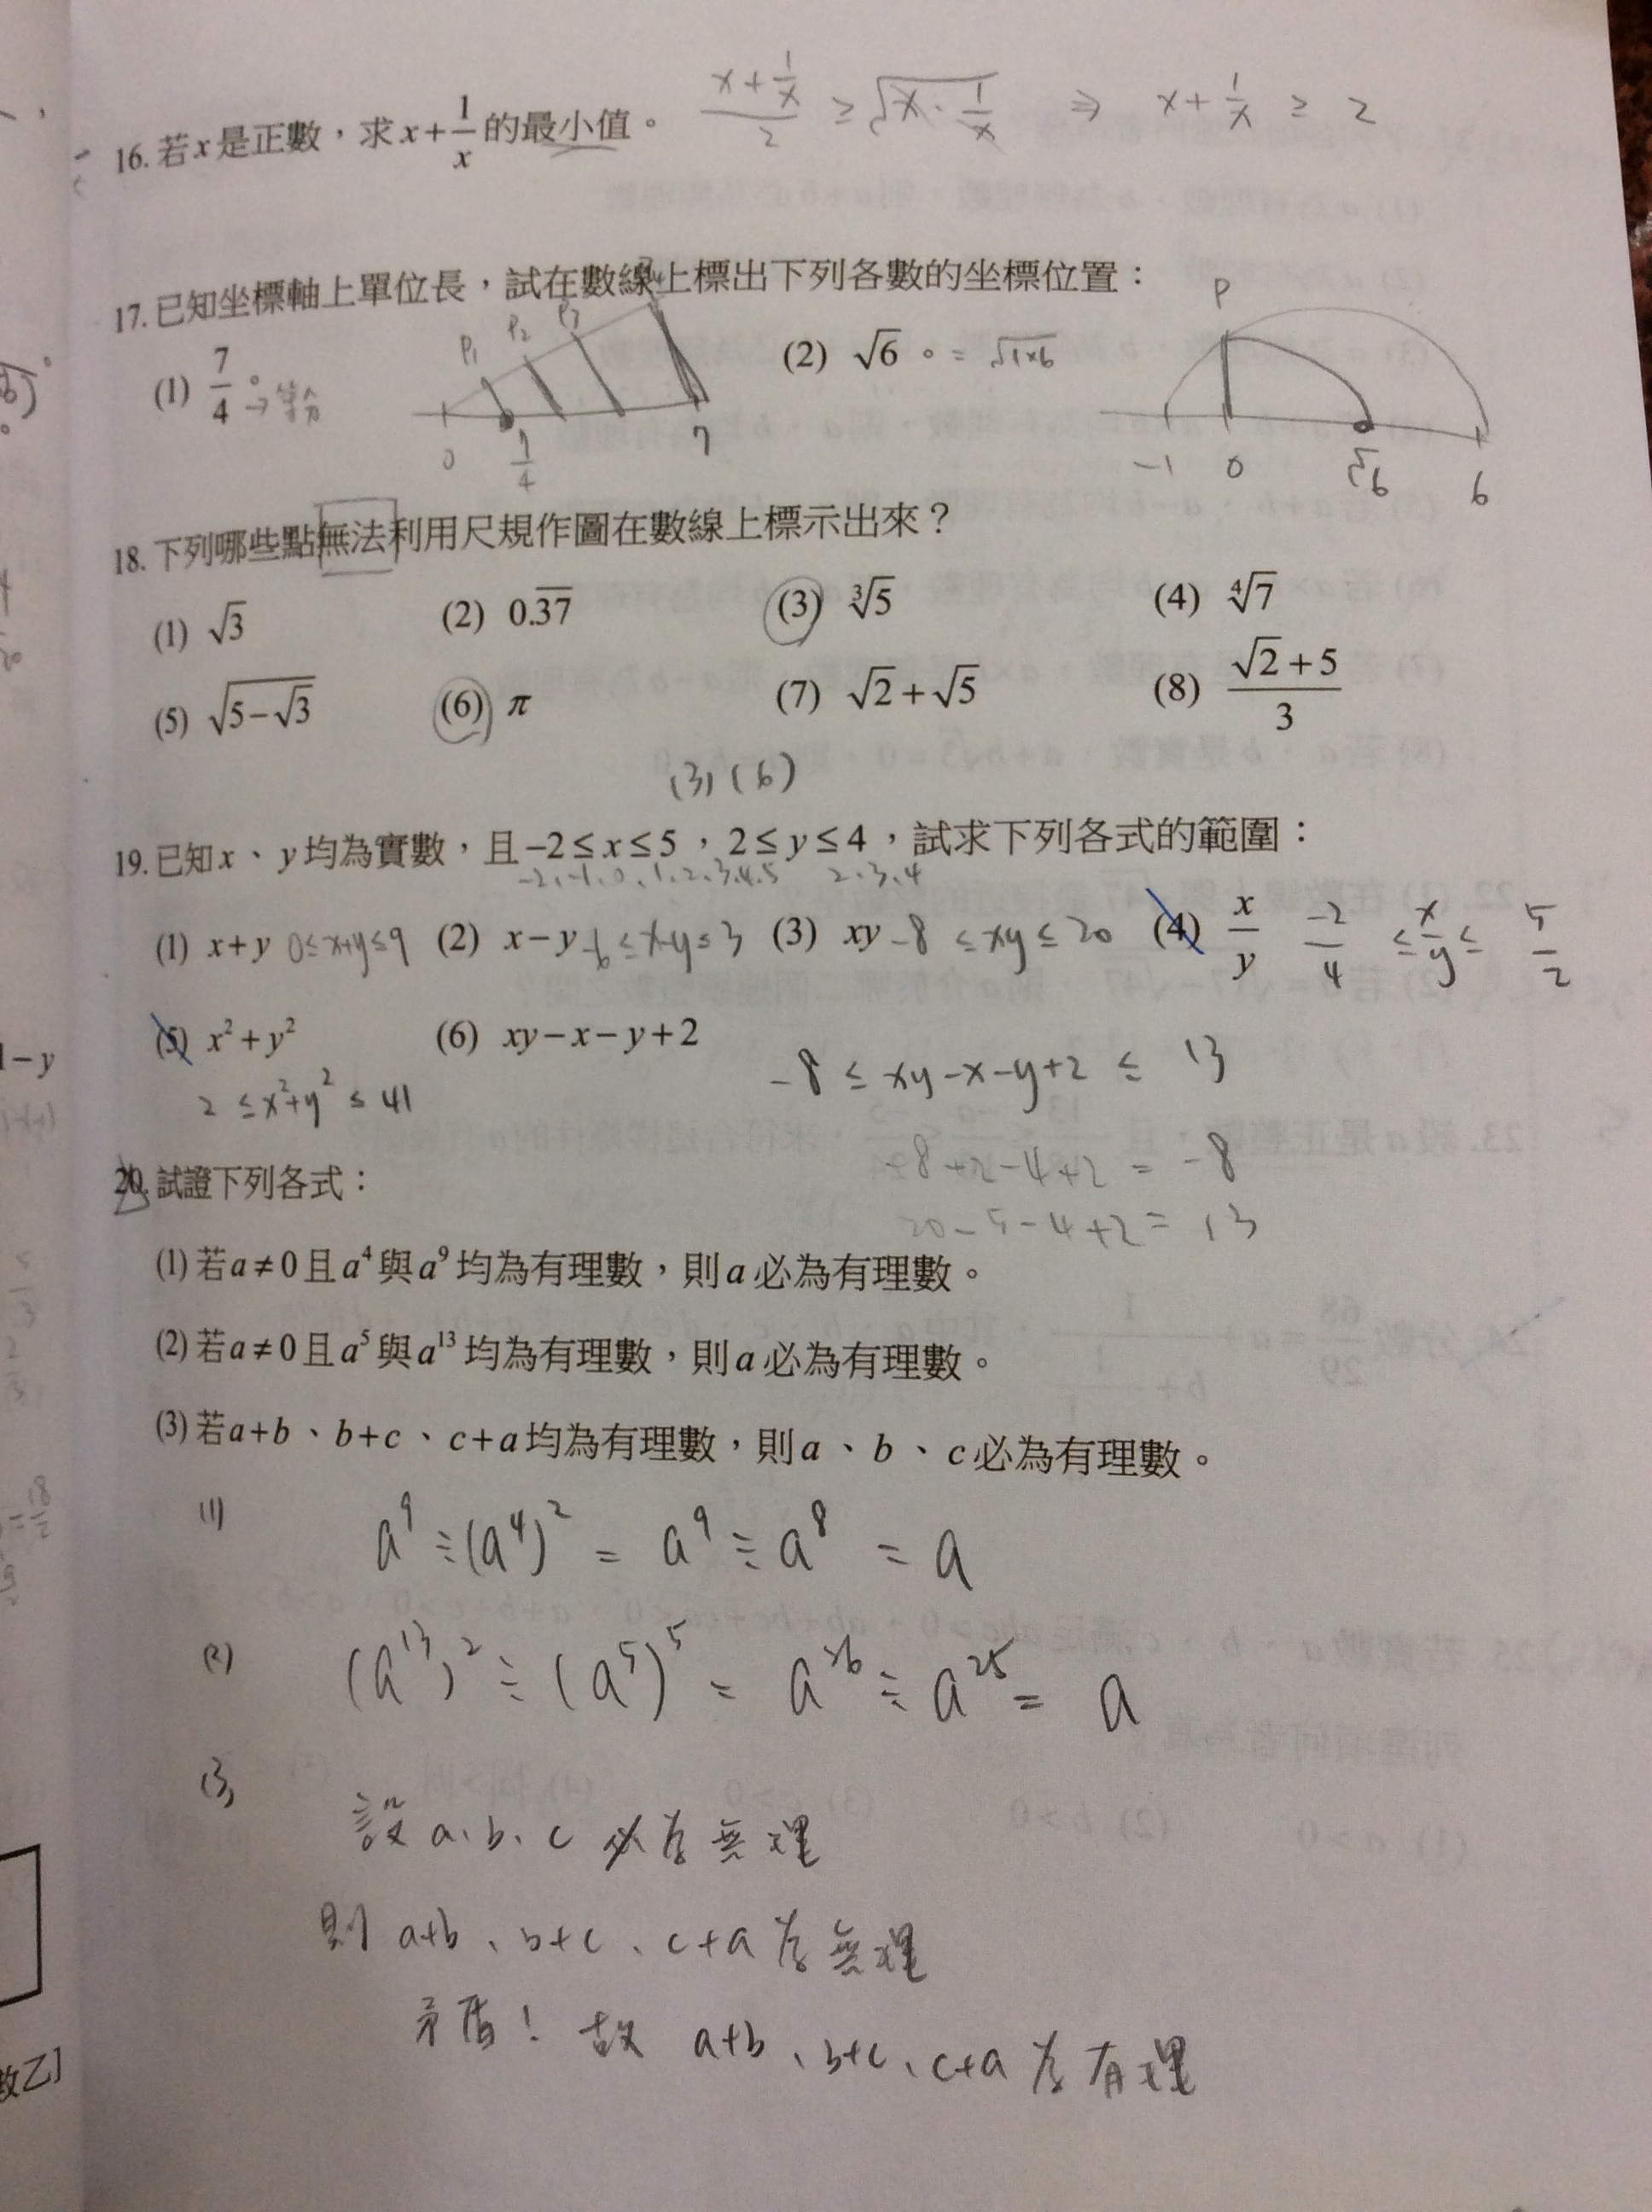 16. 若x是正數,求x+1/x的最小值。 (x+1/x)/2 ≥ √(x·1/x) ⇒ x+1/x ≥ 2
17. 已知坐標軸上單位長,試在數線上標出下列各數的坐標位置:
(1) 7/4。→等分 P₁ P₂ P₃ P₄ 0 7/4 7 (2) √6。=√(1×6) P -1 0 √6 6
18. 下列哪些點無法利用尺規作圖在數線上標示出來?
(1) √3 (2) 0.3̅7̅ (3) ∛5 (4) ∜7
(5) √(5-√3) (6) π (7) √2+√5 (8) (√2+5)/3
(3)(6)
19. 已知x、y均為實數,且-2≤x≤5,2≤y≤4,試求下列各式的範圍:
-2、-1、0、1、2、3、4、5 2、3、4
(1) x+y 0≤x+y≤9 (2) x-y -6≤x-y≤3 (3) xy -8≤xy≤20 (4) x/y -2/4 ≤ x/y ≤ 5/2
(5) x²+y² (6) xy-x-y+2 -8≤xy-x-y+2≤13
2≤x²+y²≤41
-8+2-4+2=-8
20. 試證下列各式:
20-5-4+2=13
(1) 若a≠0且a⁴與a⁹均為有理數,則a必為有理數。
(2) 若a≠0且a⁵與a¹³均為有理數,則a必為有理數。
(3) 若a+b、b+c、c+a均為有理數,則a、b、c必為有理數。
(1) a⁹÷(a⁴)²=a⁹÷a⁸=a
(2) (a¹³)²÷(a⁵)⁵=a²⁶÷a²⁵=a
(3)
設a、b、c必為無理
則a+b、b+c、c+a為無理
矛盾!故a+b、b+c、c+a為有理
1-y
=18/2
數乙]